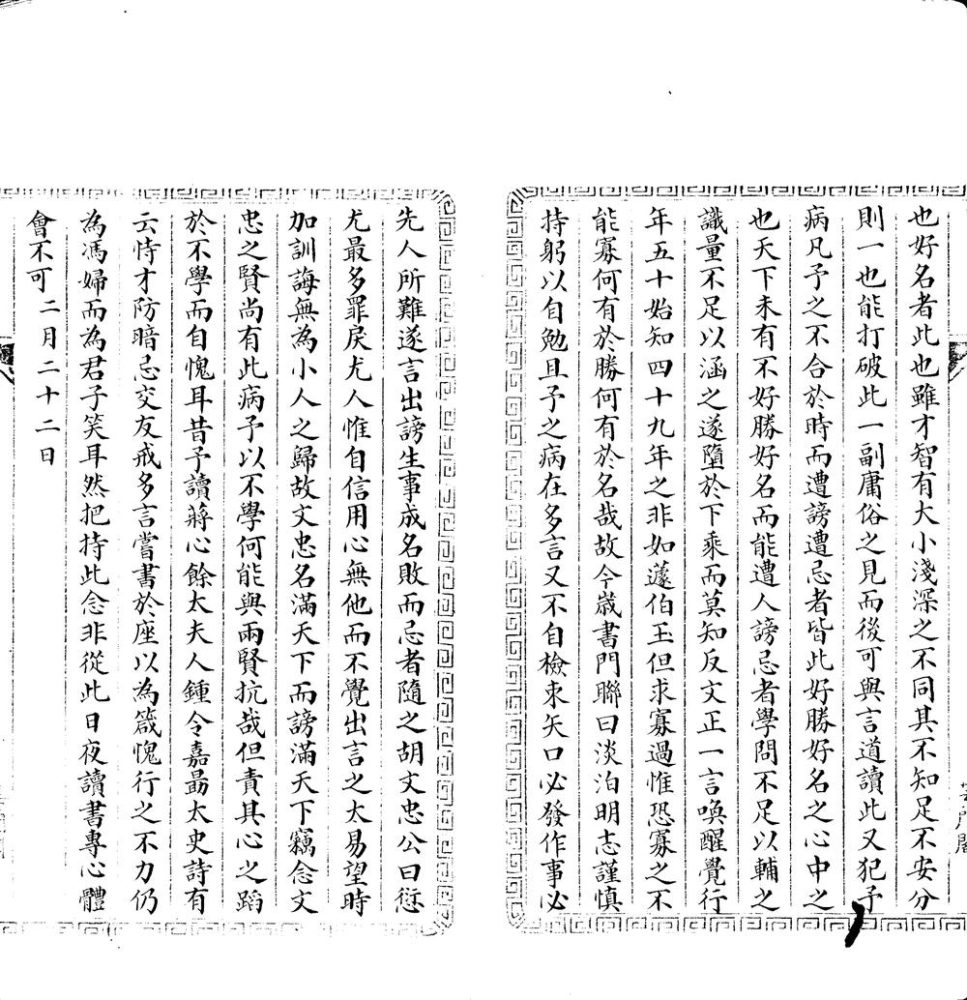 也好名者此也雖才智有大小淺深之不同其不知足不安分
則一也能打破此一副庸俗之見而後可與言道讀此又犯予
病凡予之不合於時而遭謗遭忌者皆此好勝好名之心中之
也天下未有不好勝好名而能遭人謗忌者學問不足以輔之
識量不足以涵之遂墮於下乘而莫知反文正一言喚醒覺行
年五十始知四十九年之非如蘧伯玉但求寡過惟恐寡之不
能寡何有於勝何有於名哉故今歲書門聯曰淡泊明志謹慎
持躬以自勉且予之病在多言又不自檢束矢口必發作事必
先人所難遂言出謗生事成名敗而忌者隨之胡文忠公曰愆
尤最多罪戾尤人惟自信用心無他而不覺出言之太易望時
加訓誨無為小人之歸故文忠名滿天下而謗滿天下竊念文
忠之賢尚有此病予以不學何能與兩賢抗哉但責其心之蹈
於不學而自愧耳昔予讀蔣心餘太夫人鍾令嘉勗太史詩有
云恃才防暗忌交友戒多言嘗書於座以為箴愧行之不力仍
為馮婦而為君子笑耳然把持此念非從此日夜讀書專心體
會不可 二月二十二日